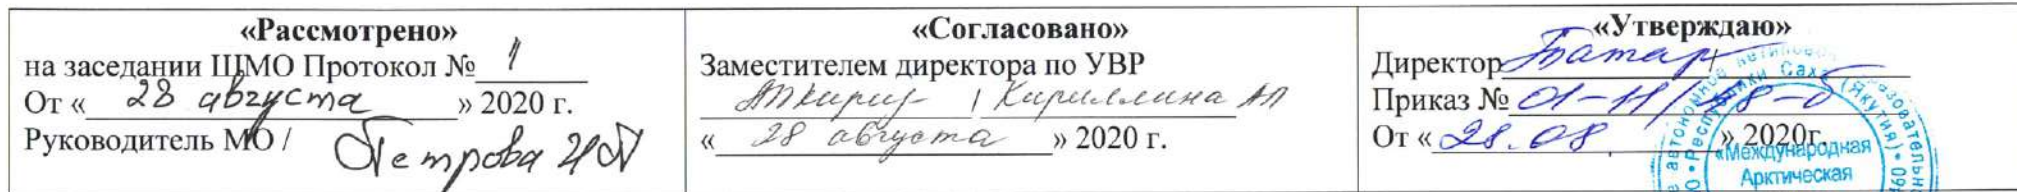 «Рассмотрено»
на заседании ШМО Протокол № 1
От « 28 августа » 2020 г.
Руководитель МО / Петрова
«Согласовано»
Заместителем директора по УВР
/ Кириллина АП
« 28 августа » 2020 г.
«Утверждаю»
Директор
Приказ № 01-11/
От « 28.08. » 2020г.
Республики Саха (Якутия)
«Международная
Арктическая